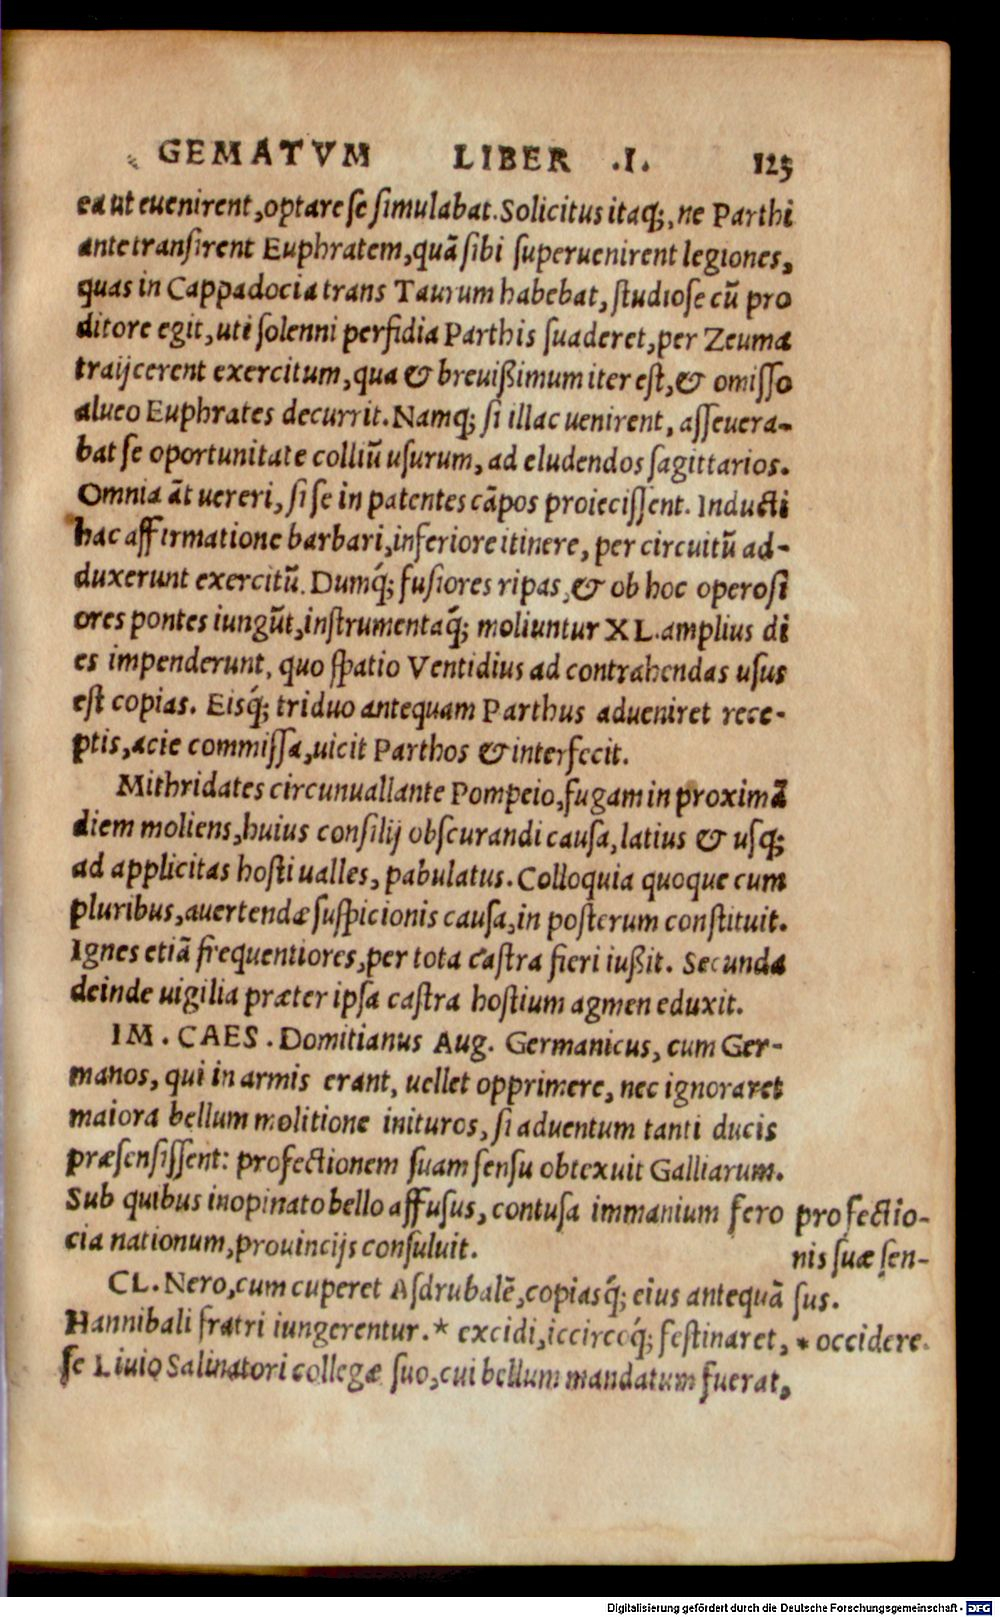 GEMATVM LIBER .I. 125
ea ut euenirent, optare se simulabat. Solicitus itaq;, ne Parthi
ante transirent Euphratem, quā sibi superuenirent legiones,
quas in Cappadocia trans Taurum habebat, studiose cū pro
ditore egit, uti solenni perfidia Parthis suaderet, per Zeuma
traijcerent exercitum, qua & breuißimum iter est, & omisso
alueo Euphrates decurrit. Namq; si illac uenirent, asseuera-
bat se oportunitate colliū usurum, ad eludendos sagittarios.
Omnia āt uereri, si se in patentes cāpos proiecissent. Inducti
hac affirmatione barbari, inferiore itinere, per circuitū ad-
duxerunt exercitū. Dumq́; fusiores ripas, & ob hoc operosi
ores pontes iungūt, instrumentaq́; moliuntur XL. amplius di
es impenderunt, quo spatio Ventidius ad contrahendas usus
est copias. Eisq́; triduo antequam Parthus adueniret rece-
ptis, acie commissa, uicit Parthos & interfecit.
Mithridates circunuallante Pompeio, fugam in proximā
diem moliens, huius consilij obscurandi causa, latius & usq;
ad applicitas hosti ualles, pabulatus. Colloquia quoque cum
pluribus, auertendæ suspicionis causa, in posterum constituit.
Ignes etiā frequentiores, per tota castra fieri iußit. Secunda
deinde uigilia præter ipsa castra hostium agmen eduxit.
IM. CAES. Domitianus Aug. Germanicus, cum Ger-
manos, qui in armis erant, uellet opprimere, nec ignoraret
maiora bellum molitione inituros, si aduentum tanti ducis
præsensissent: profectionem suam sensu obtexuit Galliarum.
Sub quibus inopinato bello affusus, contusa immanium fero
cia nationum, prouincijs consuluit.
CL. Nero, cum cuperet Asdrubalē, copiasq́; eius antequā
Hannibali fratri iungerentur. * excidi, iccircoq́; festinaret,
se Liuio Salinatori collegæ suo, cui bellum mandatum fuerat,
profectio-
nis suæ sen-
sus.
* occidere.
Digitalisierung gefördert durch die Deutsche Forschungsgemeinschaft - DFG